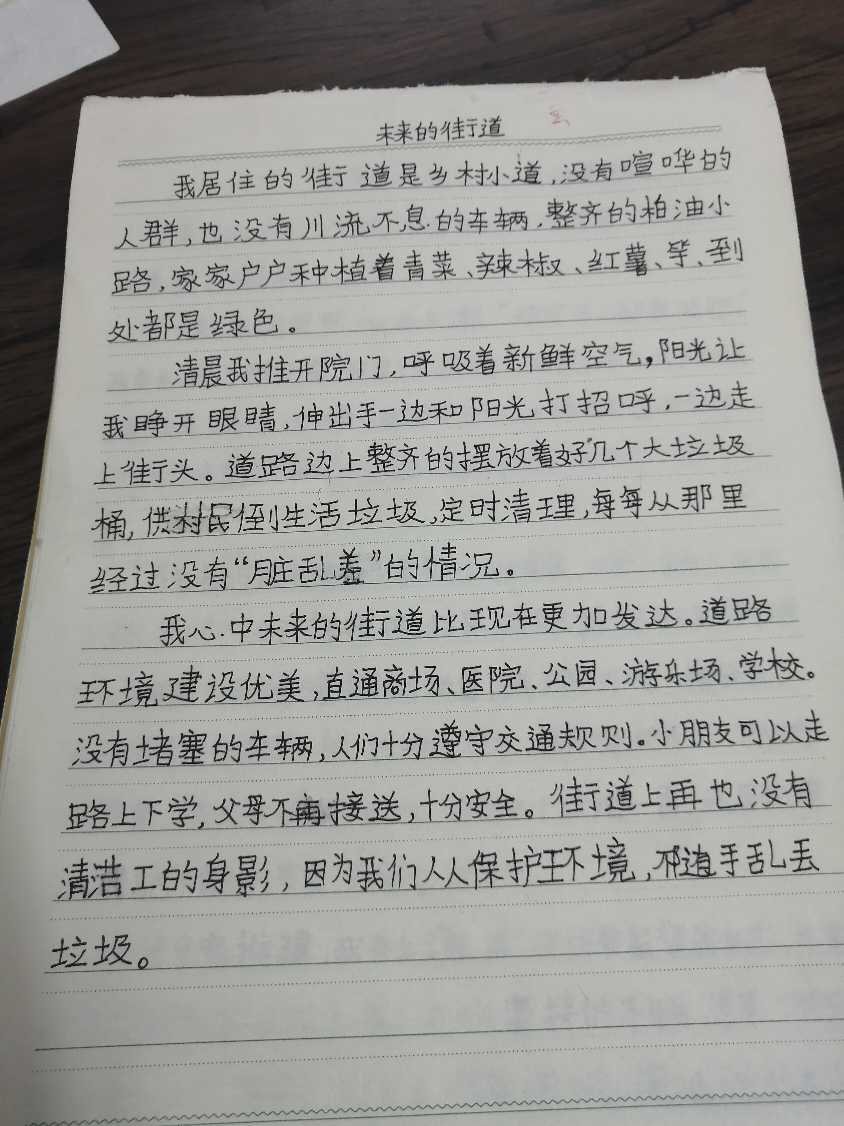 未来的街道
我居住的街道是乡村小道,没有喧哗的
人群,也没有川流不息的车辆,整齐的柏油小
路,家家户户种植着青菜、辣椒、红薯、等、到
处都是绿色。
清晨我推开院门,呼吸着新鲜空气,阳光让
我睁开眼睛,伸出手一边和阳光打招呼,一边走
上街头。道路边上整齐的摆放着好几个大垃圾
桶,供村民倒生活垃圾,定时清理,每每从那里
经过没有“脏乱差”的情况。
我心中未来的街道比现在更加发达。道路
环境建设优美,直通商场、医院、公园、游乐场、学校。
没有堵塞的车辆,人们十分遵守交通规则。小朋友可以走
路上下学,父母不再接送,十分安全。街道上再也没有
清洁工的身影,因为我们人人保护环境,不随手乱丢
垃圾。